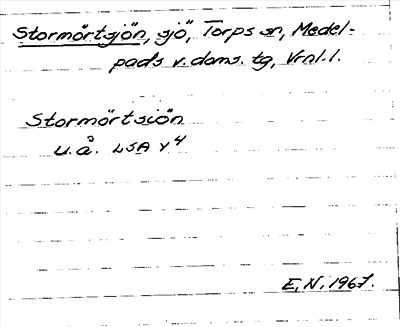 Stormörtsjön, sjö, Torps sn, Medel-
pads v. doms. tg, Vrnl. l.
Stormörtsiön
u. å. LSA Y4
E. N. 1967.